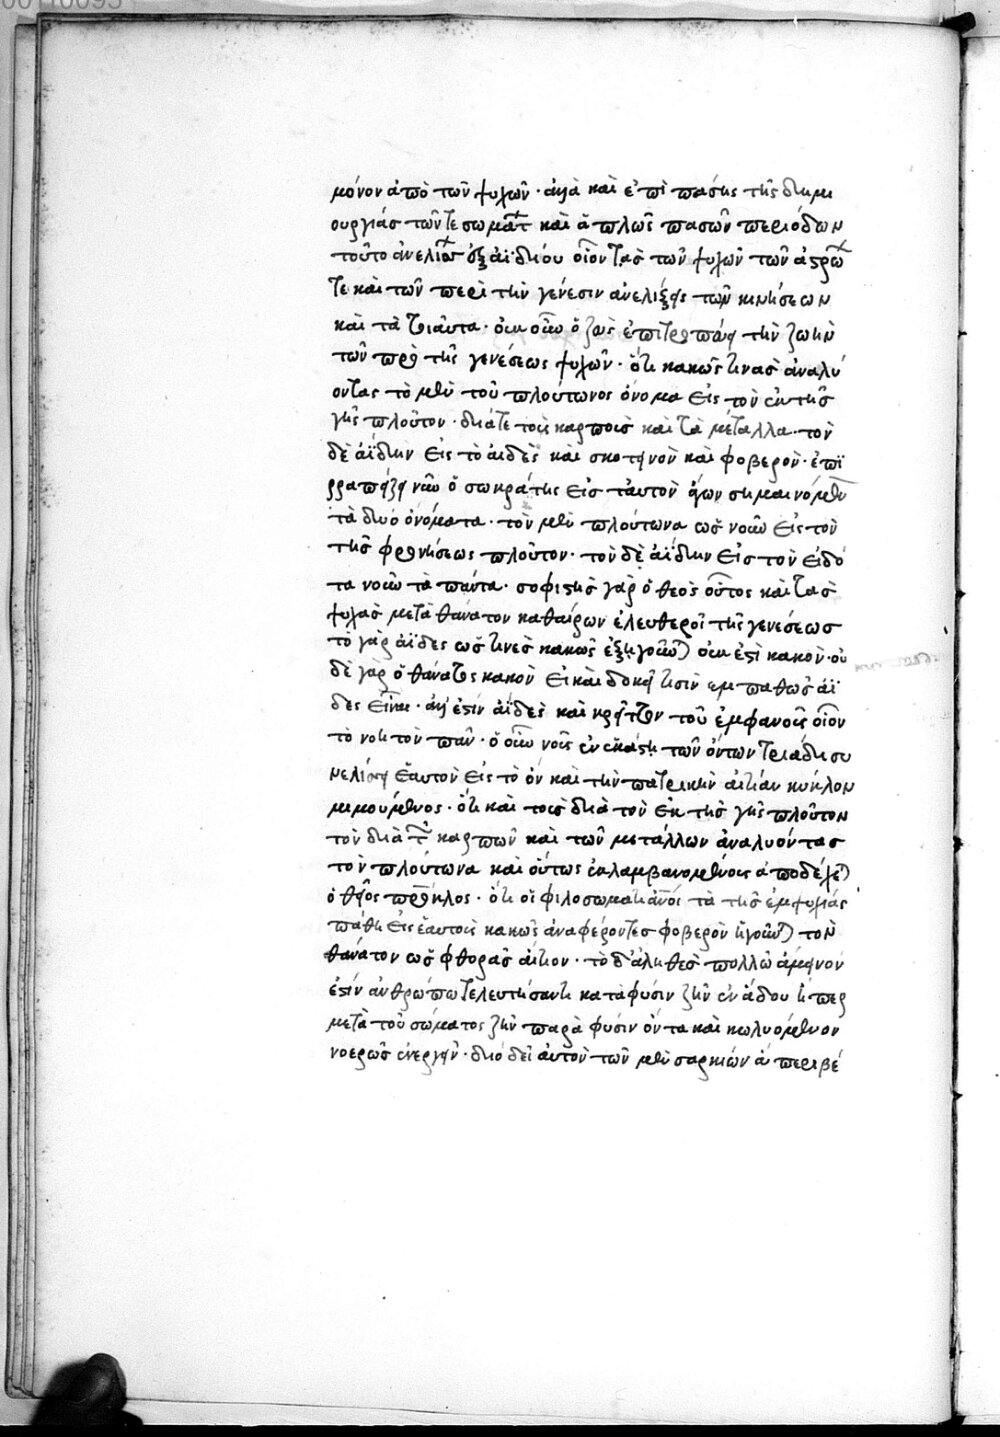 μόνον ἀπὸ τῶν ψυχῶν· ἀλλὰ καὶ ἐπὶ πάσης τῆς δημι
ουργίας τῶν τε σωμάτ καὶ ἁπλῶς πασῶν περιόδων
τοῦτο ἐξ ἀϊδίου οἷον τὰς τῶν ψυχῶν τῶν ἀστρω
τε καὶ τῶν περὶ τὴν γένεσιν ἀνελίξεις τῶν κινήσεων
καὶ τὰ τοιαῦτα· ὁ ζεὺς ἐπιτροπεύει τὴν ζωὴν
τῶν πρὸ τῆς γενέσεως ψυχῶν· ὅτι κακῶς τινὰς ἀναλύ
οντας τὸ μὲν τοῦ πλούτωνος ὄνομα εἰς τὸν ἐν τῆς
γῆς πλοῦτον· διά τε τοὺς καρποὺς καὶ τὰ μέταλλα· τὸν
δὲ ἀΐδην εἰς τὸ ἀιδὲς καὶ σκοτεινὸν καὶ φοβερὸν· ἐπϊ
ρραπίζει νῦν ὁ σωκράτης εἰς ταυτὸν ἄγων σημαινόμεν
τὰ δύο ὀνόματα· τὸν μὲν πλούτωνα ὡς νοῦν εἰς τὸν
τῆς φρονήσεως πλοῦτον· τὸν δὲ ἀΐδην εἰς τὸν εἰδό
τα νοῦν τὰ πάντα· σοφιστὴς γὰρ ὁ θεὸς οὗτος καὶ τὰς
ψυχὰς μετὰ θάνατον καθαίρων ἐλευθεροῖ τῆς γενέσεως
τὸ γὰρ ἀϊδες ὡς τινὲς κακῶς ἐξηγοῦν) οὐκ ἐστὶ κακὸν· οὐ
δὲ γὰρ ὁ θάνατος κακὸν εἰ καὶ δοκεῖ τισὶν ἐμπαθῶς ἀϊ
δες εἶναι· ἀλλ ἐστὶν ἀϊδὲς καὶ κρεῖττον τοῦ ἐμφανοῦς οἷον
τὸ νοητὸν πᾶν· ὁ οὖν νοῦς ἐν ἑκάστη τῶν ὄντων τριάδι συ
νελίσσει ἑαυτὸν εἰς τὸ ὂν καὶ τὴν πατρικὴν αἰτίαν κύκλον
μιμούμενος· ὅτι καὶ τοὺς διὰ τὸν ἐκ τῆς γῆς πλοῦτον
τὸν διὰ τ καρπῶν καὶ τῶν μετάλλων ἀναλυόντας
τὸν πλούτωνα καὶ οὕτως ἐκλαμβανομένους ἀποδέχε)
ὁ θεῖος πρόκλος· ὅτι οἱ φιλοσώματι ἄνοι τὰ τῆς ἐμψυχίας
πάθη εἰς ἑαυτοὺς κακῶς ἀναφέροντες φοβερὸν ἡγοῦν) τὸν
θάνατον ὡς φθορᾶς αἴτιον· τὸ δ' ἀληθὲς πολλῶ ἄμεινον
ἐστὶν ἀνθρώπω τελευτήσαντι κατὰ φύσιν ζῆν ἐν ἅδου ἤπερ
μετὰ τοῦ σώματος ζῆν παρὰ φύσιν ὄντα καὶ κωλυόμενον
νοερῶς ἐνεργεῖν· διὸ δεῖ αὐτὸν τῶν μὲν σαρκίων ἀπεριβέ